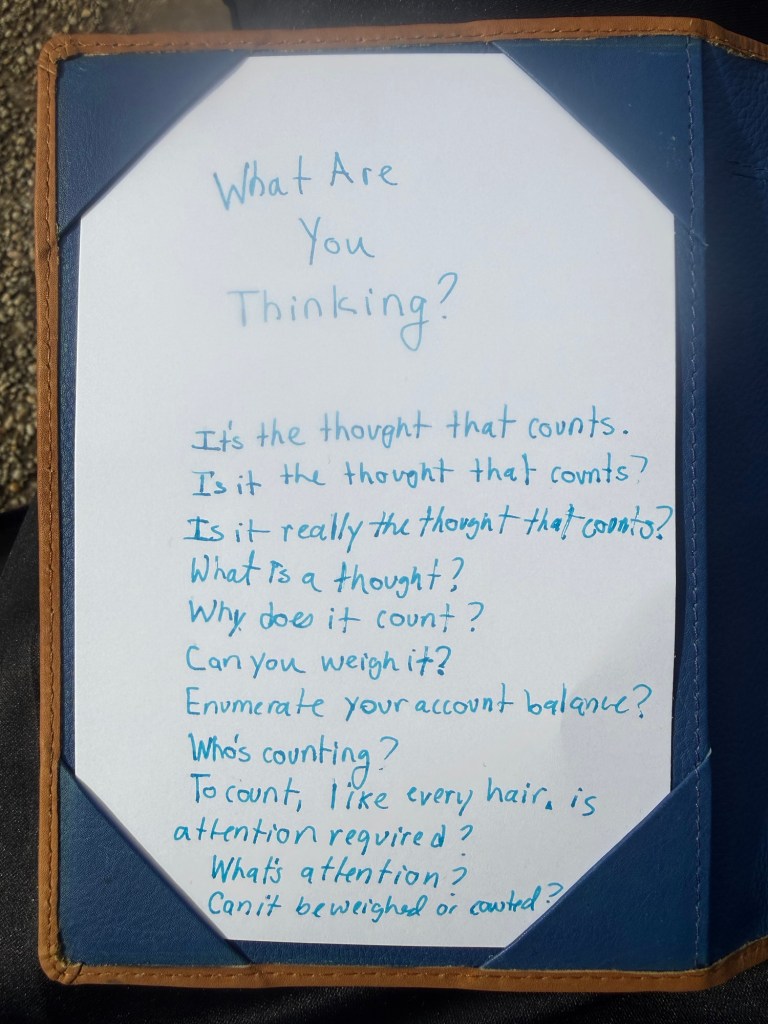 What Are
You
Thinking?
It's the thought that counts.
Is it the thought that counts?
Is it really the thought that counts?
What is a thought?
Why does it count?
Can you weigh it?
Enumerate your account balance?
Who's counting?
To count, like every hair, is
attention required?
What's attention?
Can it be weighed or counted?